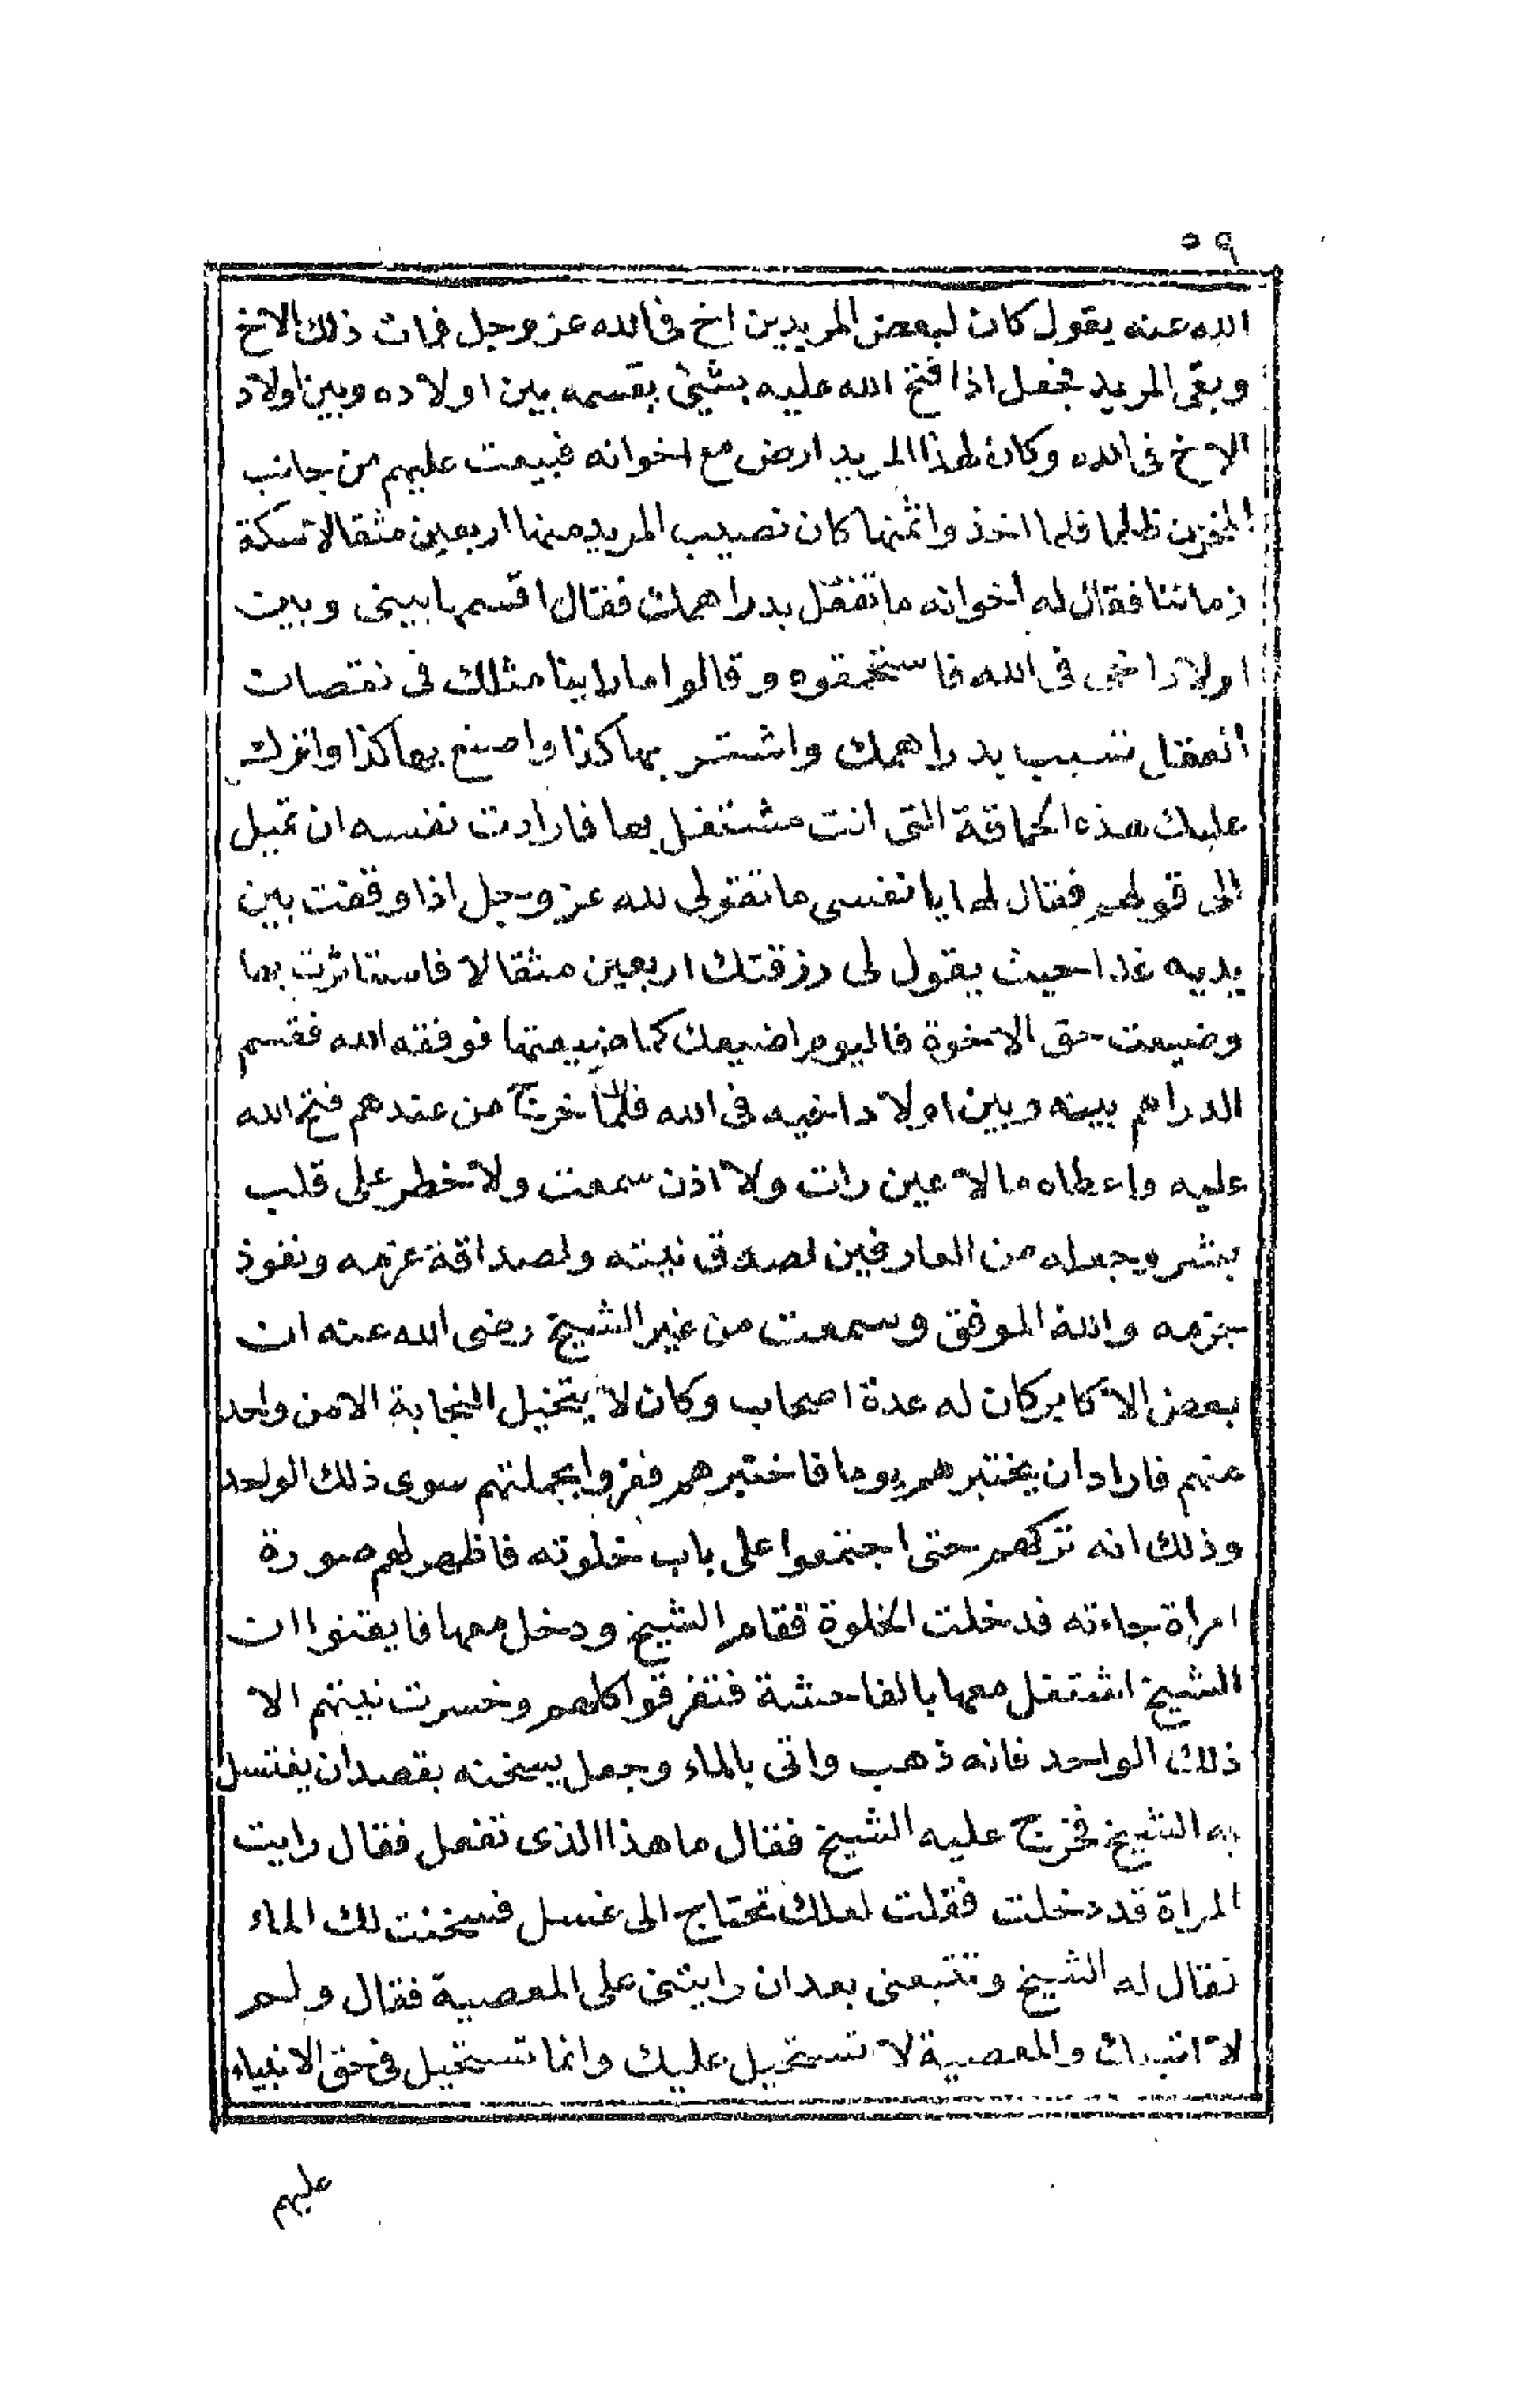 ٥٩
الله عنه يقول كان لبعض المريدين اخ فى الله عز وجل فمات ذلك الاخ
وبقى المريد فجعل اذا فتح الله عليه بشيئ يقسمه بين اولاده وبين اولاد
الاخ فى الله وكان لهذا المريد ارض مع اخوانه فبيعت عليهم من جانب
المخزن ظلما فلما اخذوا ثمنها كان نصيب المريد منها اربعين مثقالا سكة
زماننا فقال له اخوانه ما تفعل بدراهمك فقال اقسمها بينى وبين
اولاد اخى فى الله فاستحمقوه وقالوا ما راينا مثلك فى نقصان
العقل تسبب بدراهمك واشتر بها كذا واصنع بها كذا واترك
عليك هذه الحماقة التى انت مشتغل بها فارادت نفسه ان تميل
الى قولهم فقال لها يا نفسى ما تقولى لله عز وجل اذا وقفت بين
يديه غدا حيث يقول لى رزقتك اربعين مثقالا فاستاثرت بها
وضيعت حق الاخوة فاليوم اضيعك كما ضيعتها فوفقه الله فقسم
الدراهم بينه وبين اولاد اخيه فى الله فلما خرج من عندهم فتح الله
عليه واعطاه ما لا عين رات ولا اذن سمعت ولا خطر على قلب
بشر وجعله من العارفين لصدق نيته ولصداقة عزمه ونفوذ
جزمه والله الموفق وسمعت من غير الشيخ رضى الله عنه ان
بعض الاكابر كان له عدة اصحاب وكان لا يتخيل النجابة الا من واحد
منهم فاراد ان يختبرهم يوما فاختبرهم ففروا بجملتهم سوى ذلك الواحد
وذلك انه تركهم حتى اجتمعوا على باب خلوته فاظهر لهم صورة
امراة جاءته فدخلت الخلوة فقام الشيخ ودخل معها فايقنوا ان
الشيخ اشتغل معها بالفاحشة فتفرقوا كلهم وخسرت نيتهم الا
ذلك الواحد فانه ذهب واتى بالماء وجعل يسخنه بقصد ان يغتسل
به الشيخ فخرج عليه الشيخ فقال ما هذا الذى تفعل فقال رايت
المراة قد دخلت فقلت لعلك تحتاج الى غسل فسخنت لك الماء
فقال له الشيخ وتتبعنى بعد ان رايتنى على المعصية فقال ولم
لا اتبعك والمعصية لا تستحيل عليك وانما تستحيل فى حق الانبياء
عليهم